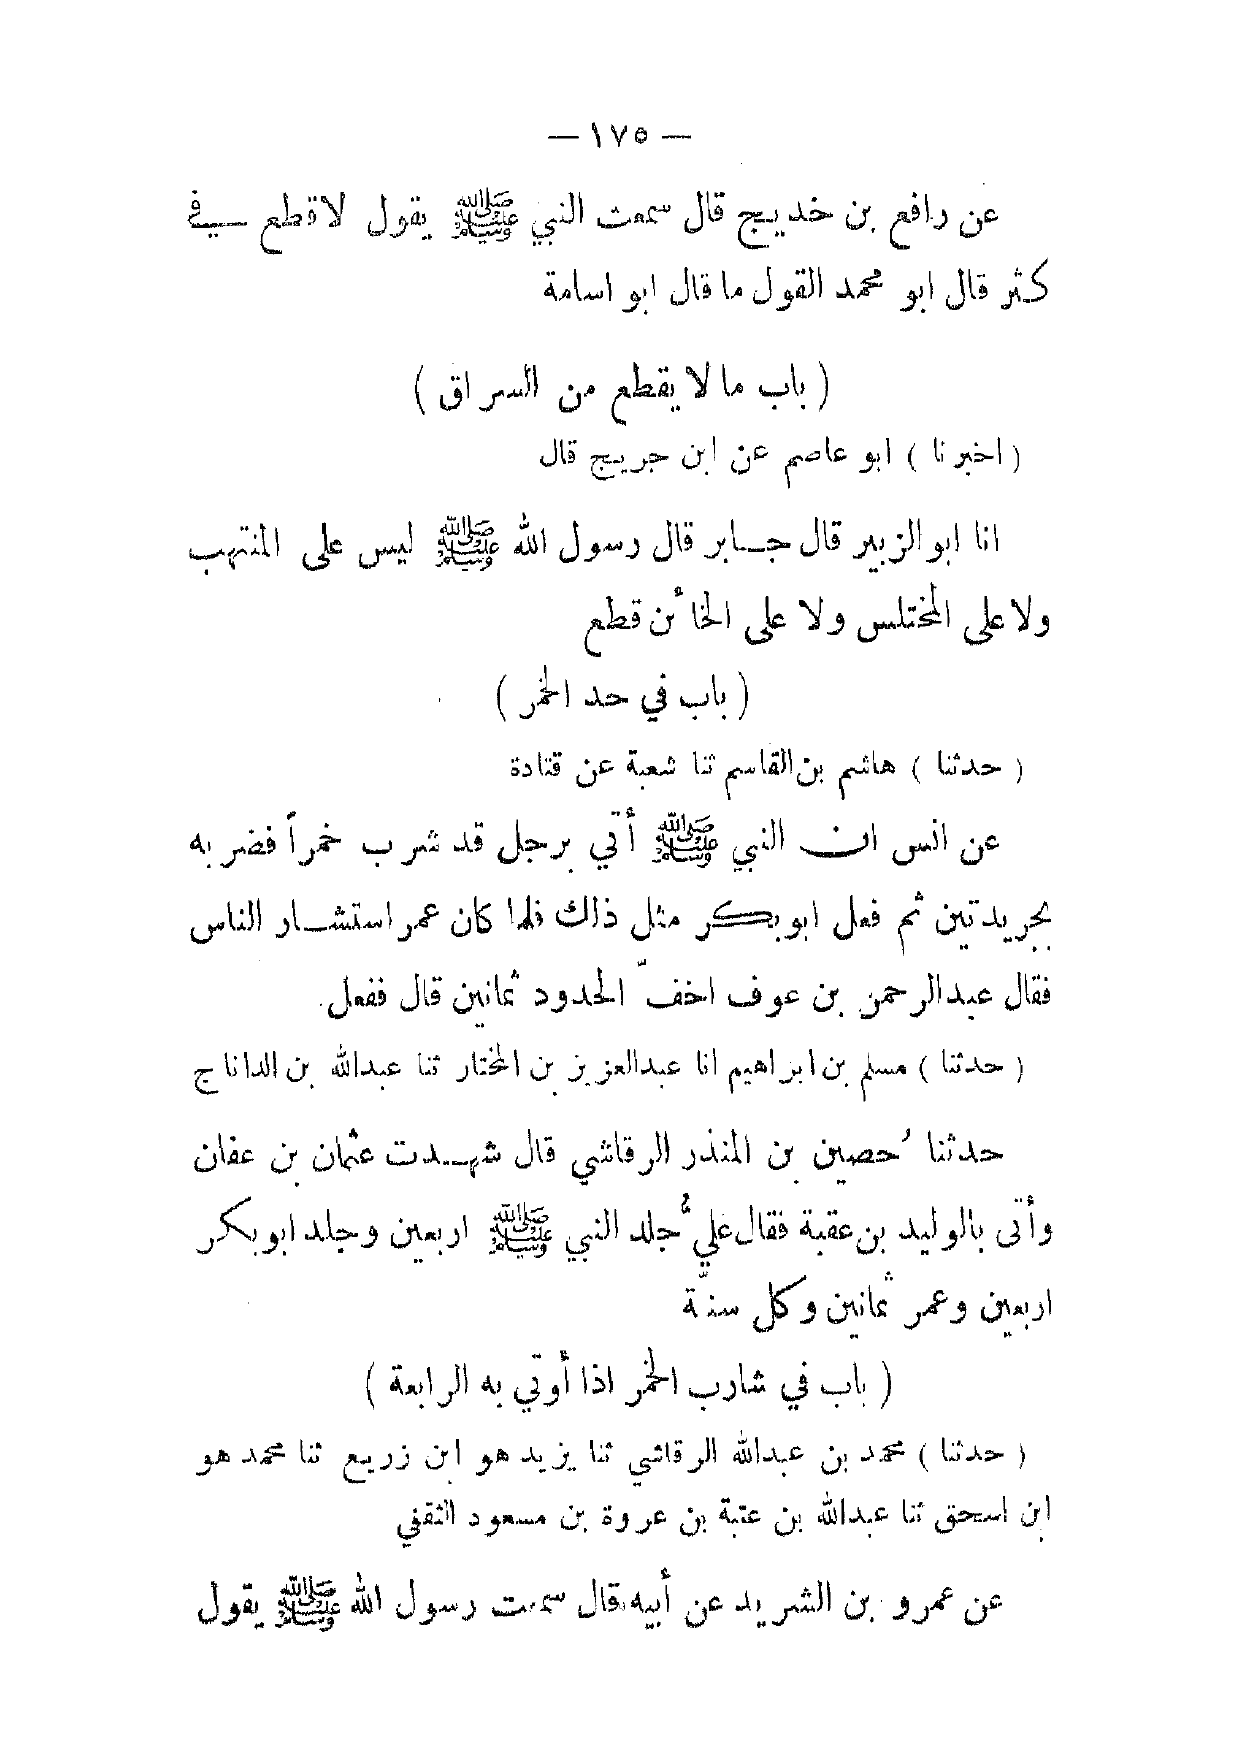 — ١٧٥ —
عن رافع بن خديج قال سمعت النبي ﷺ يقول لاقطع في
كثر قال ابو محمد القول ما قال ابو اسامة
( باب ما لا يقطع من السراق )
( اخبرنا ) ابو عاصم عن ابن جريج قال
انا ابو الزبير قال جابر قال رسول الله ﷺ ليس على المنتهب
ولا على المختلس ولا على الخائن قطع
( باب في حد الخمر )
( حدثنا ) هاشم بن القاسم ثنا شعبة عن قتادة
عن انس ان النبي ﷺ أتي برجل قد شرب خمراً فضربه
بجريدتين ثم فعل ابو بكر مثل ذلك فلما كان عمر استشار الناس
فقال عبد الرحمن بن عوف اخفّ الحدود ثمانين قال ففعل.
( حدثنا ) مسلم بن ابراهيم انا عبد العزيز بن المختار ثنا عبدالله بن الداناج
حدثنا حُصين بن المنذر الرقاشي قال شهدت عثمان بن عفان
وأتى بالوليد بن عقبة فقال عليُّ جلد النبي ﷺ اربعين وجلد ابو بكر
اربعين وعمر ثمانين وكل سنّة
( باب في شارب الخمر اذا أوتي به الرابعة )
( حدثنا ) محمد بن عبدالله الرقاشي ثنا يزيد هو ابن زريع ثنا محمد هو
ابن اسحق ثنا عبدالله بن عتبة بن عروة بن مسعود الثقفي
عن عمرو بن الشريد عن أبيه قال سمعت رسول الله ﷺ يقول